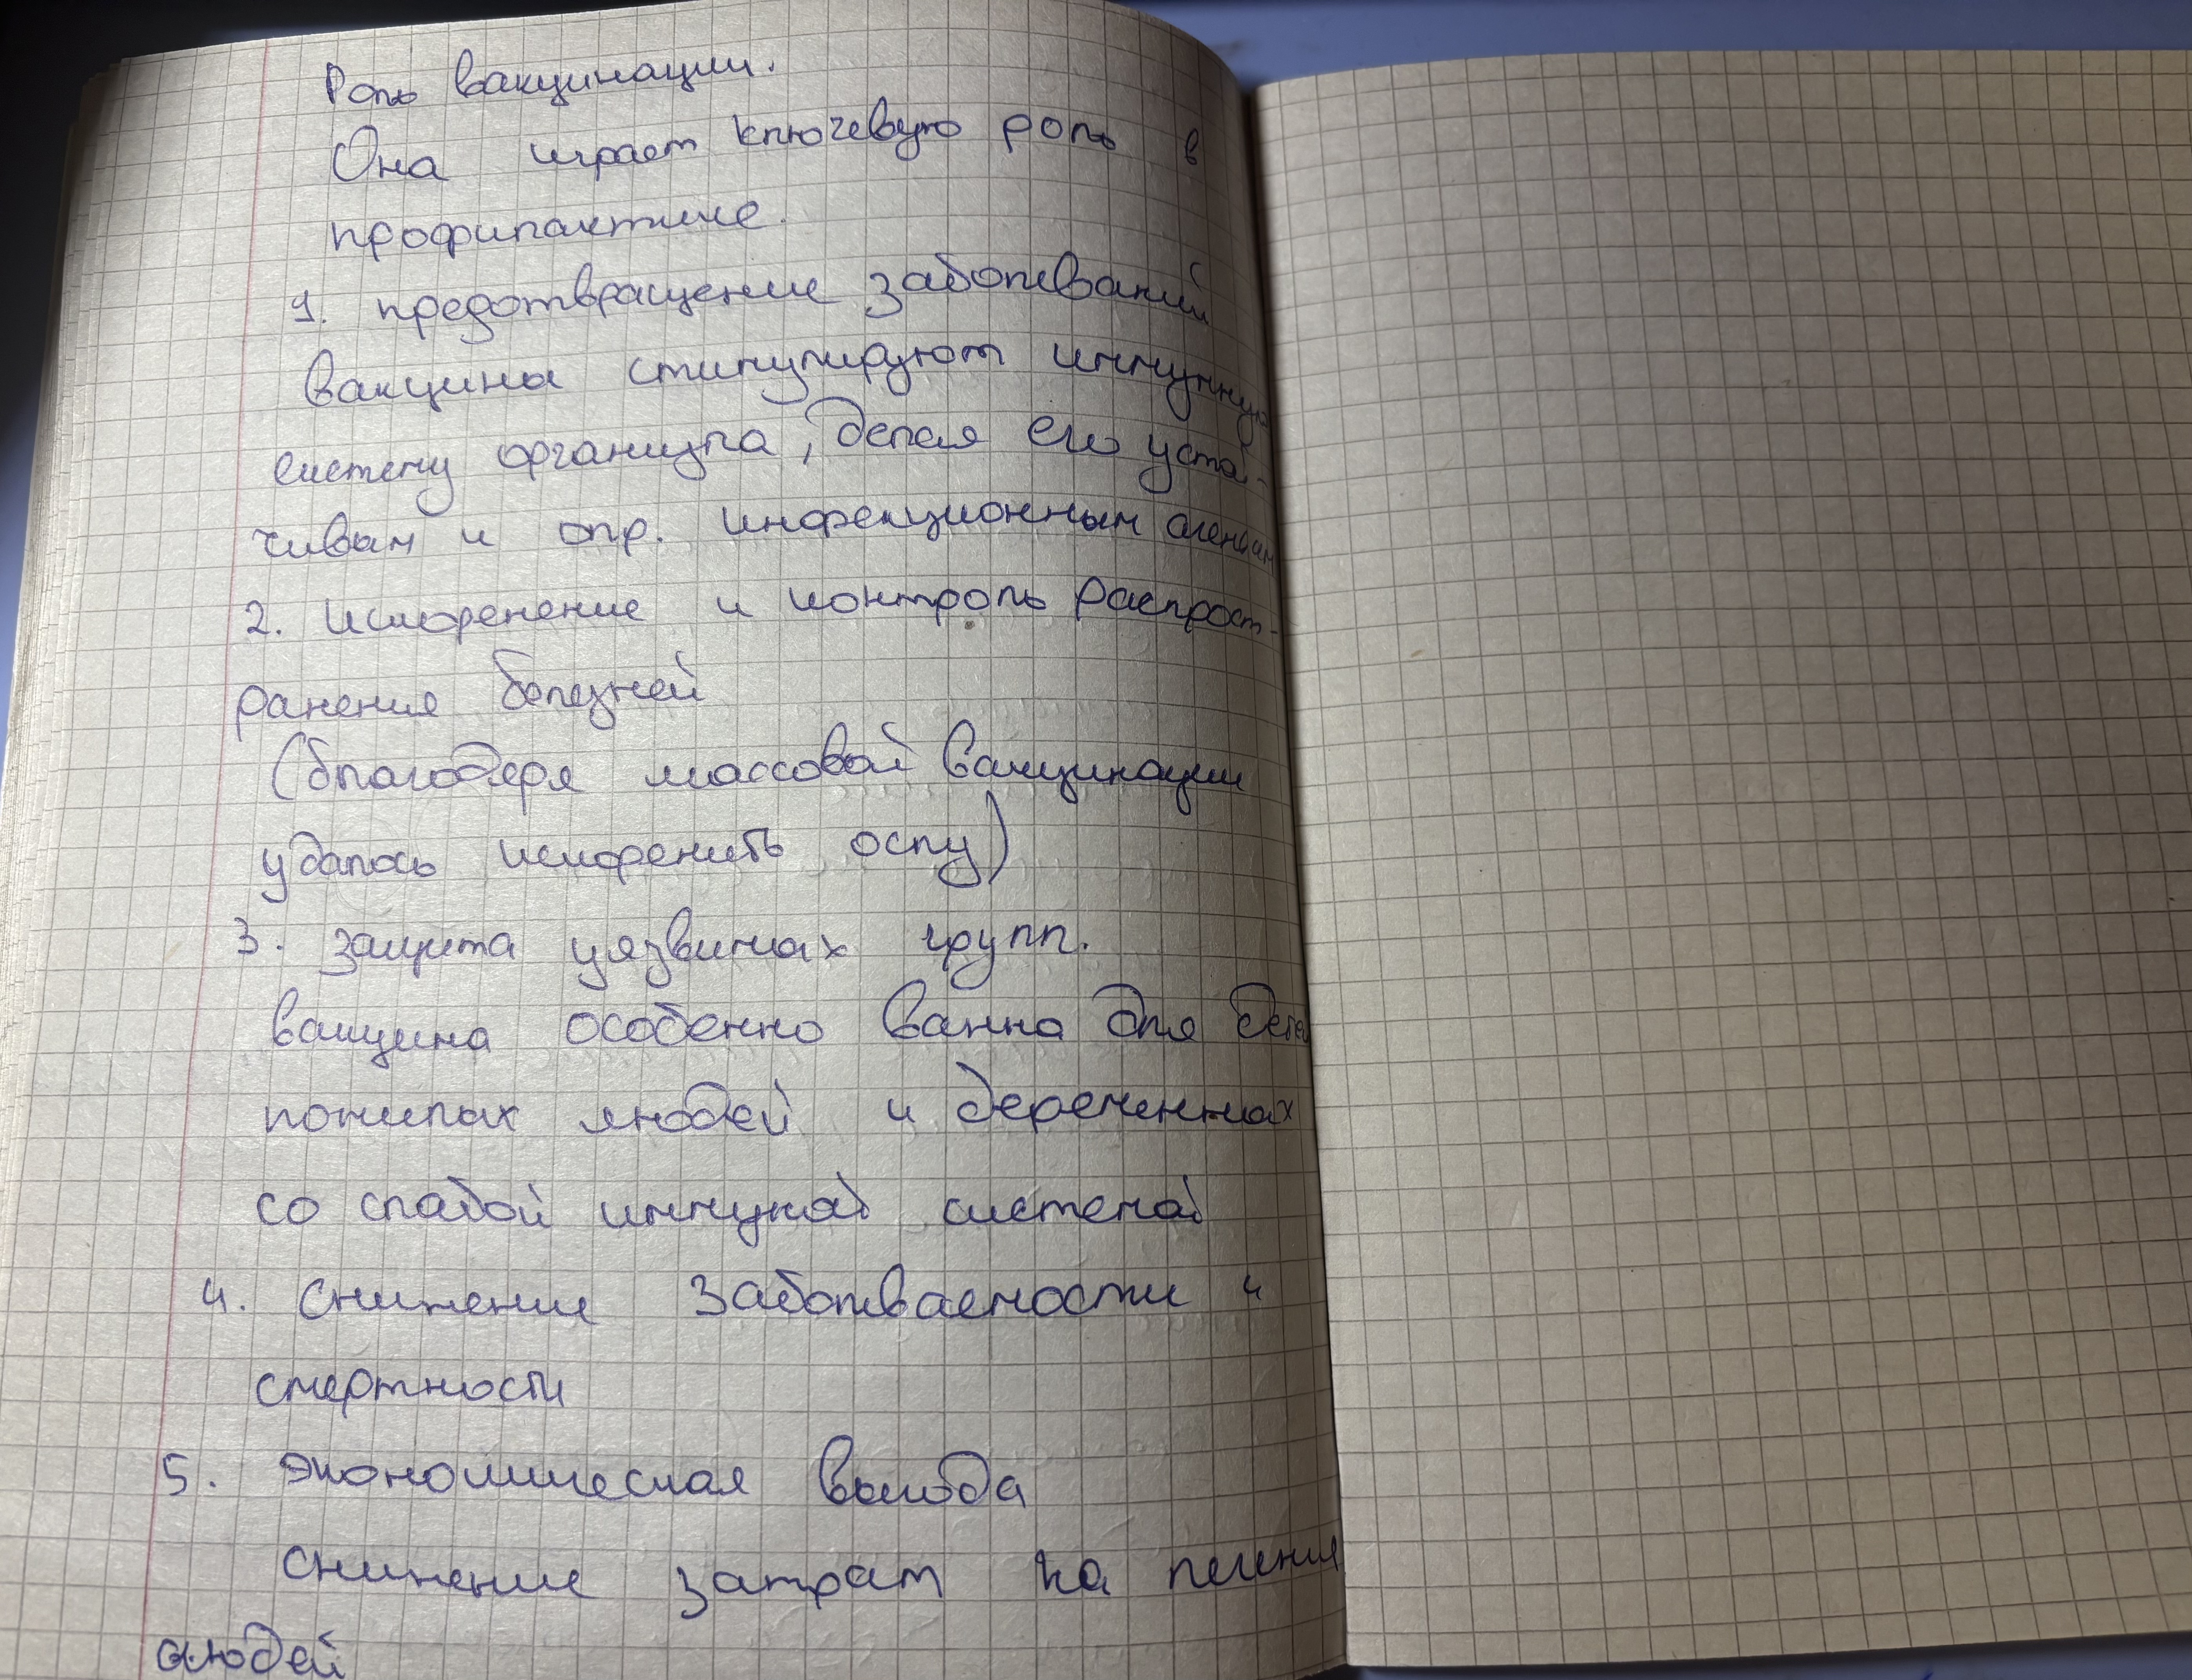 Роль вакцинации.
Она играет ключевую роль в
профилактике.
1. предотвращение заболеваний
вакцины стимулируют иммунную
систему организма, делая его устой-
чивым к опр. инфекционным агентам
2. искоренение и контроль распрост-
ранения болезней
(благодаря массовой вакцинации
удалось искоренить оспу)
3. защита уязвимых групп.
вакцина особенно важна для детей
пожилых людей и беременных
со слабой имунной системой
4. снижение заболеваемости и
смертности
5. экономическая выгода
снижение затрат на лечение
людей